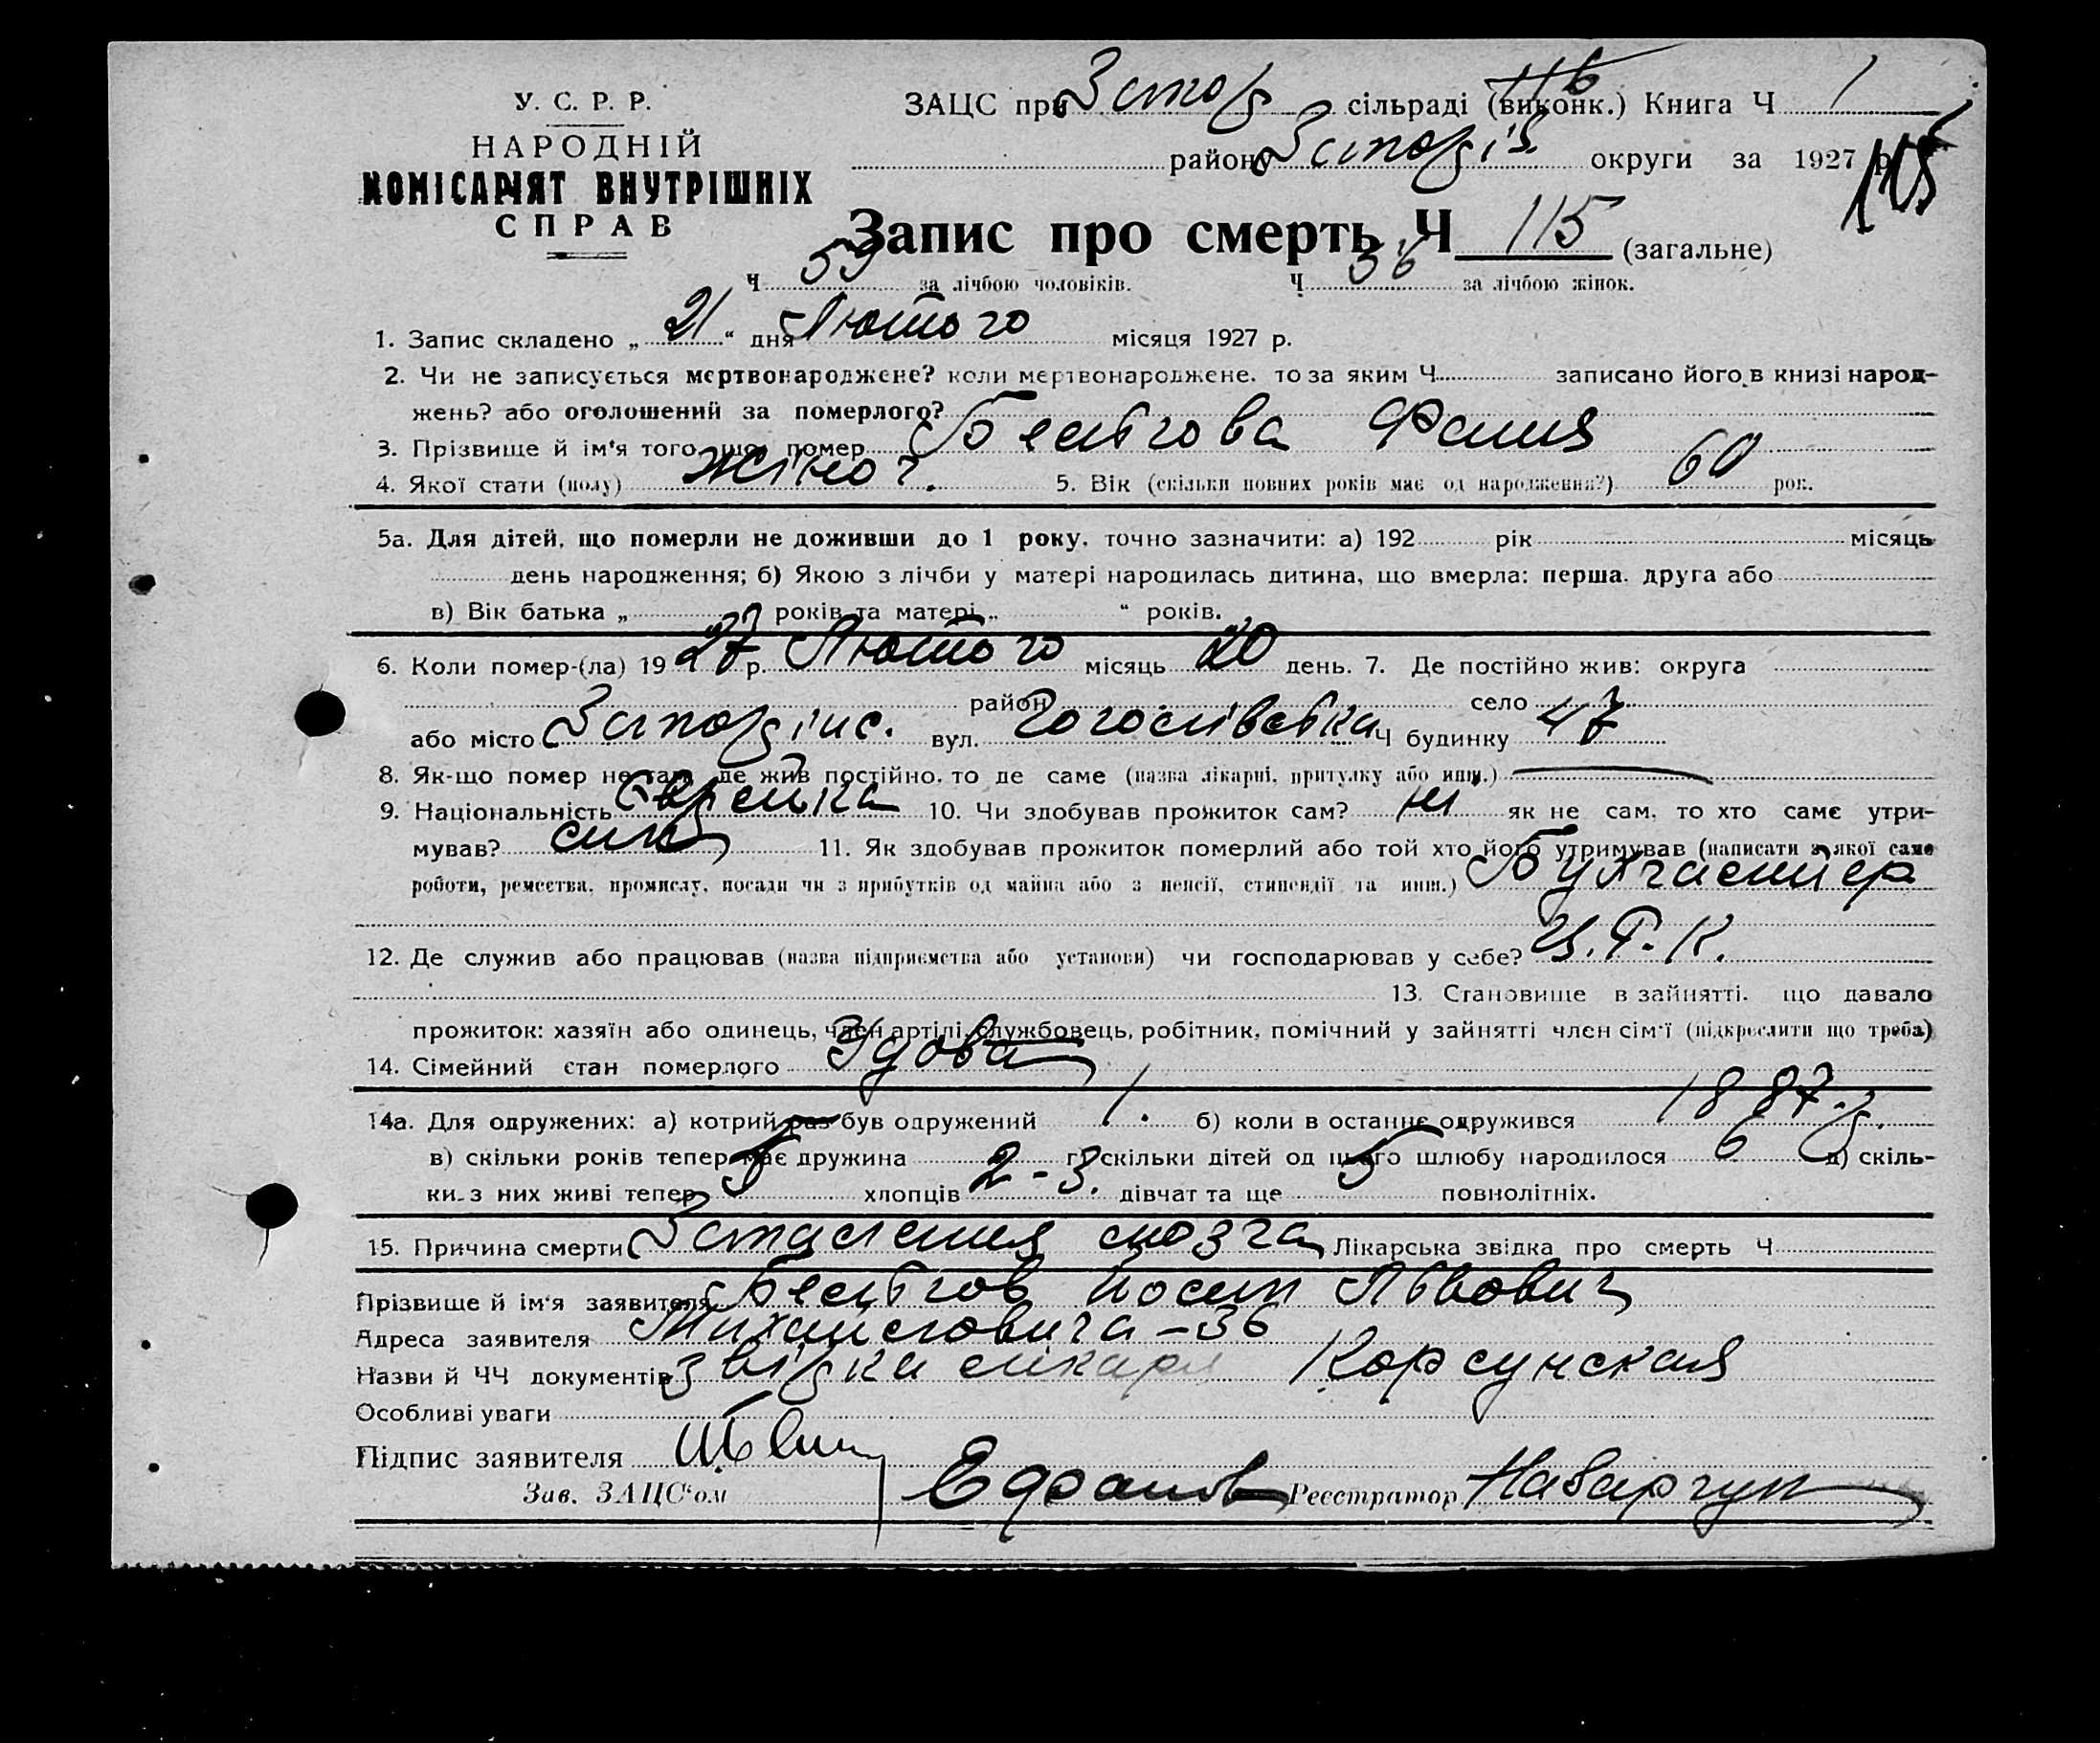 У. С. Р. Р.
НАРОДНІЙ
КОМІСАРІЯТ ВНУТРІШНІХ
СПРАВ
ЗАЦС при сільраді (виконк.) Книга Ч 1
116
району округи за 1927 р.
Запис про смерть Ч 115 (загальне)
Ч 59 за лічбою чоловіків. Ч 56 за лічбою жінок.
1. Запис складено „ 21 “ дня Лютого місяця 1927 р.
2. Чи не записується мертвонароджене? коли мертвонароджене, то за яким Ч записано його в книзі народ-
жень? або оголошений за померлого?
3. Прізвище й ім'я того, що помер Фаня
4. Якої стати (полу) жіноч. 5. Вік (скільки повних років має од народження?) 60 рок.
5а. Для дітей, що померли не доживши до 1 року, точно зазначити: а) 192 рік місяць
день народження; б) Якою з лічби у матері народилась дитина, що вмерла: перша, друга або
в) Вік батька „ років та матері „ “ років.
6. Коли помер-(ла) 19 27 р. Лютого місяць 20 день. 7. Де постійно жив: округа
район село
або місто вул. Ч будинку 47
8. Як-що помер не там, де жив постійно, то де саме (назва лікарні, притулку або инш.)
9. Національність Єврейка 10. Чи здобував прожиток сам? ні як не сам, то хто саме утри-
мував? син 11. Як здобував прожиток померлий або той хто його утримував (написати з якої саме
роботи, ремества, промислу, посади чи з прибутків од майна або з пенсії, стипендії та инш.) Бухгалтер
12. Де служив або працював (назва підприємства або установи) чи господарював у себе?
13. Становище в зайнятті, що давало
прожиток: хазяїн або одинець, член артілі, службовець, робітник, помічний у зайнятті член сім'ї (підкреслити що треба)
14. Сімейний стан померлого Удова
14а. Для одружених: а) котрий раз був одружений 1. б) коли в останнє одружився 1887 р.
в) скільки років тепер має дружина г) скільки дітей од цього шлюбу народилося 6 д) скіль-
ки з них живі тепер 5 хлопців 2 - 3. дівчат та ще 5 повнолітніх.
15. Причина смерти Запаления мозга Лікарська звідка про смерть Ч
Прізвище й ім'я заявителя Йосип Львович
Адреса заявителя Михайловича - 36
Назви й ЧЧ документів звідка лікаря Корсунская
Особливі уваги
Підпис заявителя
Зав. ЗАЦС'ом Реєстратор